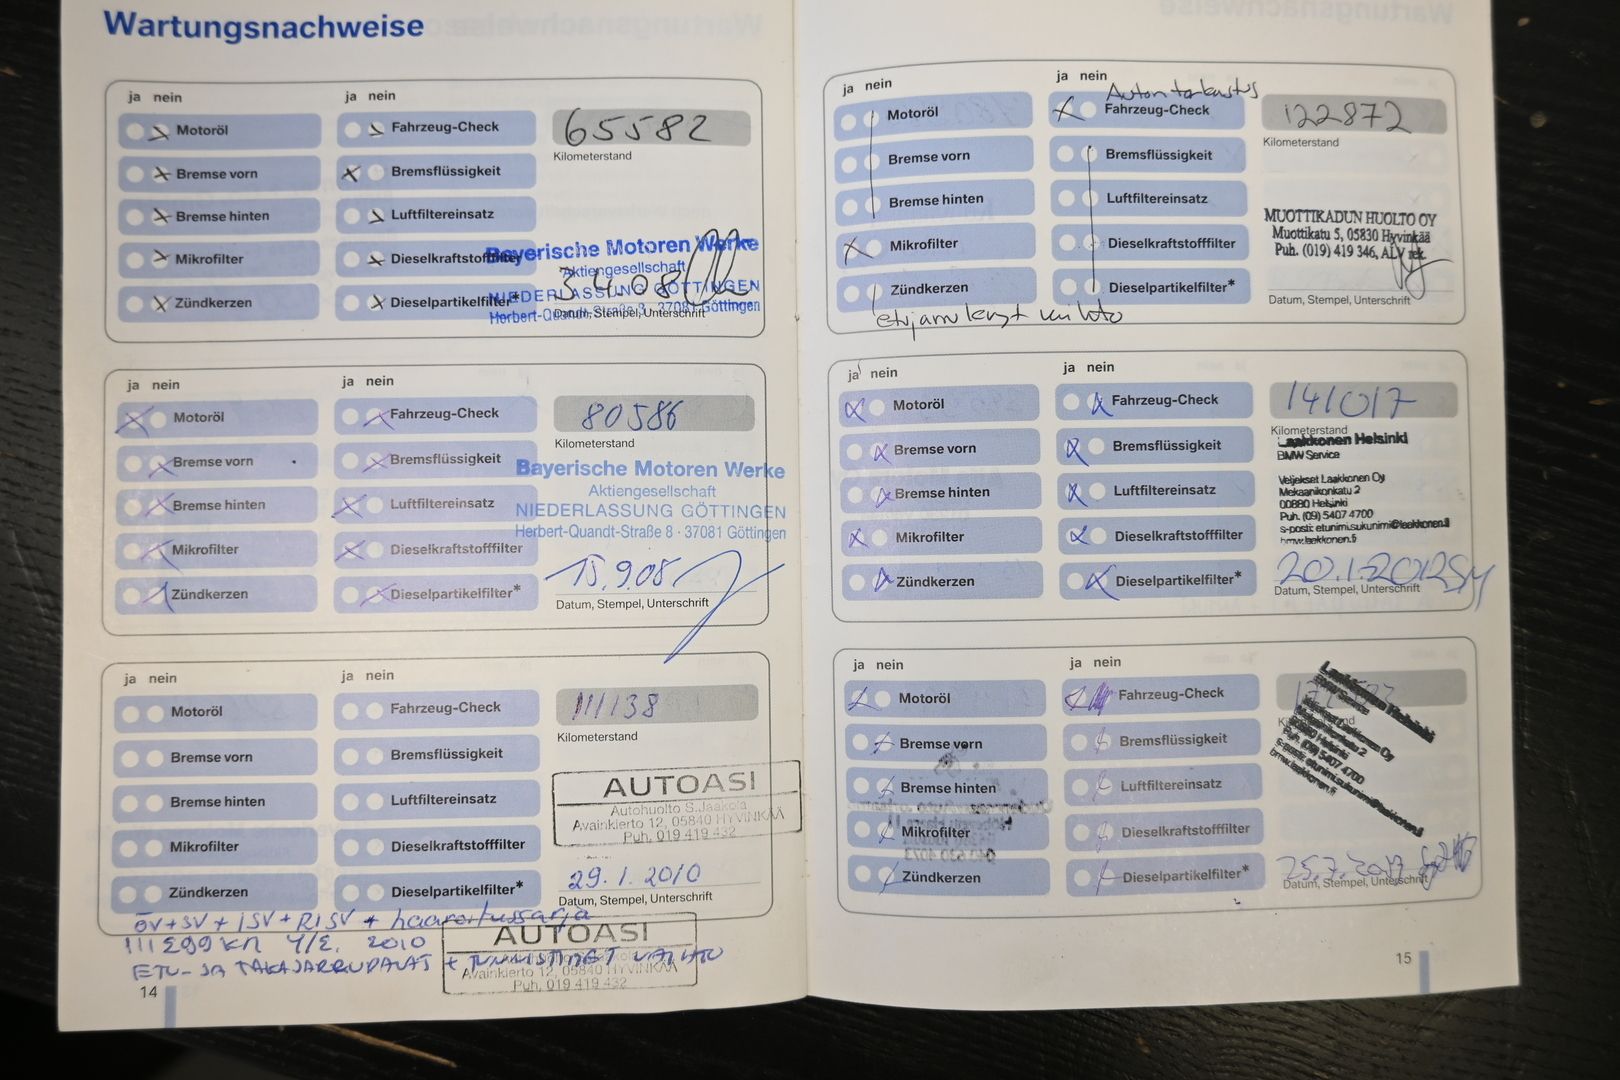 Wartungsnachweise
ja nein
ja nein
Motoröl
Fahrzeug-Check
65582
Kilometerstand
Bremse vorn
Bremsflüssigkeit
Bremse hinten
Luftfiltereinsatz
Mikrofilter
Dieselkraftstofffilter
Zündkerzen
Dieselpartikelfilter*
Bayerische Motoren Werke
Aktiengesellschaft
NIEDERLASSUNG GÖTTINGEN
Herbert-Quandt-Straße 8 · 37081 Göttingen
3.4.08
Datum, Stempel, Unterschrift
ja nein
ja nein
Motoröl
Fahrzeug-Check
80586
Kilometerstand
Bremse vorn
Bremsflüssigkeit
Bremse hinten
Luftfiltereinsatz
Mikrofilter
Dieselkraftstofffilter
Zündkerzen
Dieselpartikelfilter*
Bayerische Motoren Werke
Aktiengesellschaft
NIEDERLASSUNG GÖTTINGEN
Herbert-Quandt-Straße 8 · 37081 Göttingen
15.9.08
Datum, Stempel, Unterschrift
ja nein
ja nein
Motoröl
Fahrzeug-Check
111138
Kilometerstand
Bremse vorn
Bremsflüssigkeit
Bremse hinten
Luftfiltereinsatz
Mikrofilter
Dieselkraftstofffilter
Zündkerzen
Dieselpartikelfilter*
AUTOASI
Autohuolto S.Jaakola
Avainkierto 12, 05840 HYVINKÄÄ
Puh. 019 419 432
29.1.2010
Datum, Stempel, Unterschrift
ÖV+SV+ISV+RISV +
111299 KM 4/2. 2010
ETU- JA TAKAJARRUPALAT + TUNNISTIMET VAIHTO
AUTOASI
Avainkierto 12, 05840 HYVINKÄÄ
Puh. 019 419 432
14
ja nein
ja nein
Auton tarkastus
Motoröl
Fahrzeug-Check
122872
Kilometerstand
Bremse vorn
Bremsflüssigkeit
Bremse hinten
Luftfiltereinsatz
Mikrofilter
Dieselkraftstofffilter
Zündkerzen
Dieselpartikelfilter*
MUOTTIKADUN HUOLTO OY
Muottikatu 5, 05830 Hyvinkää
Puh. (019) 419 346, ALV rek.
Datum, Stempel, Unterschrift
ja nein
ja nein
Motoröl
Fahrzeug-Check
141017
Kilometerstand
Bremse vorn
Bremsflüssigkeit
Bremse hinten
Luftfiltereinsatz
Mikrofilter
Dieselkraftstofffilter
Zündkerzen
Dieselpartikelfilter*
Laakkonen Helsinki
BMW Service
Veljekset Laakkonen Oy
Mekaanikonkatu 2
00880 Helsinki
Puh. (09) 5407 4700
s-posti: etunimi.sukunimi@laakkonen.fi
bmw.laakkonen.fi
20.1.2012
Datum, Stempel, Unterschrift
ja nein
ja nein
Motoröl
Fahrzeug-Check
Bremse vorn
Bremsflüssigkeit
Bremse hinten
Luftfiltereinsatz
Mikrofilter
Dieselkraftstofffilter
Zündkerzen
Dieselpartikelfilter*
Laakkonen Helsinki
BMW Service
Veljekset Laakkonen Oy
Mekaanikonkatu 2
00880 Helsinki
Puh. (09) 5407 4700
s-posti: etunimi.sukunimi@laakkonen.fi
bmw.laakkonen.fi
Datum, Stempel, Unterschrift
15